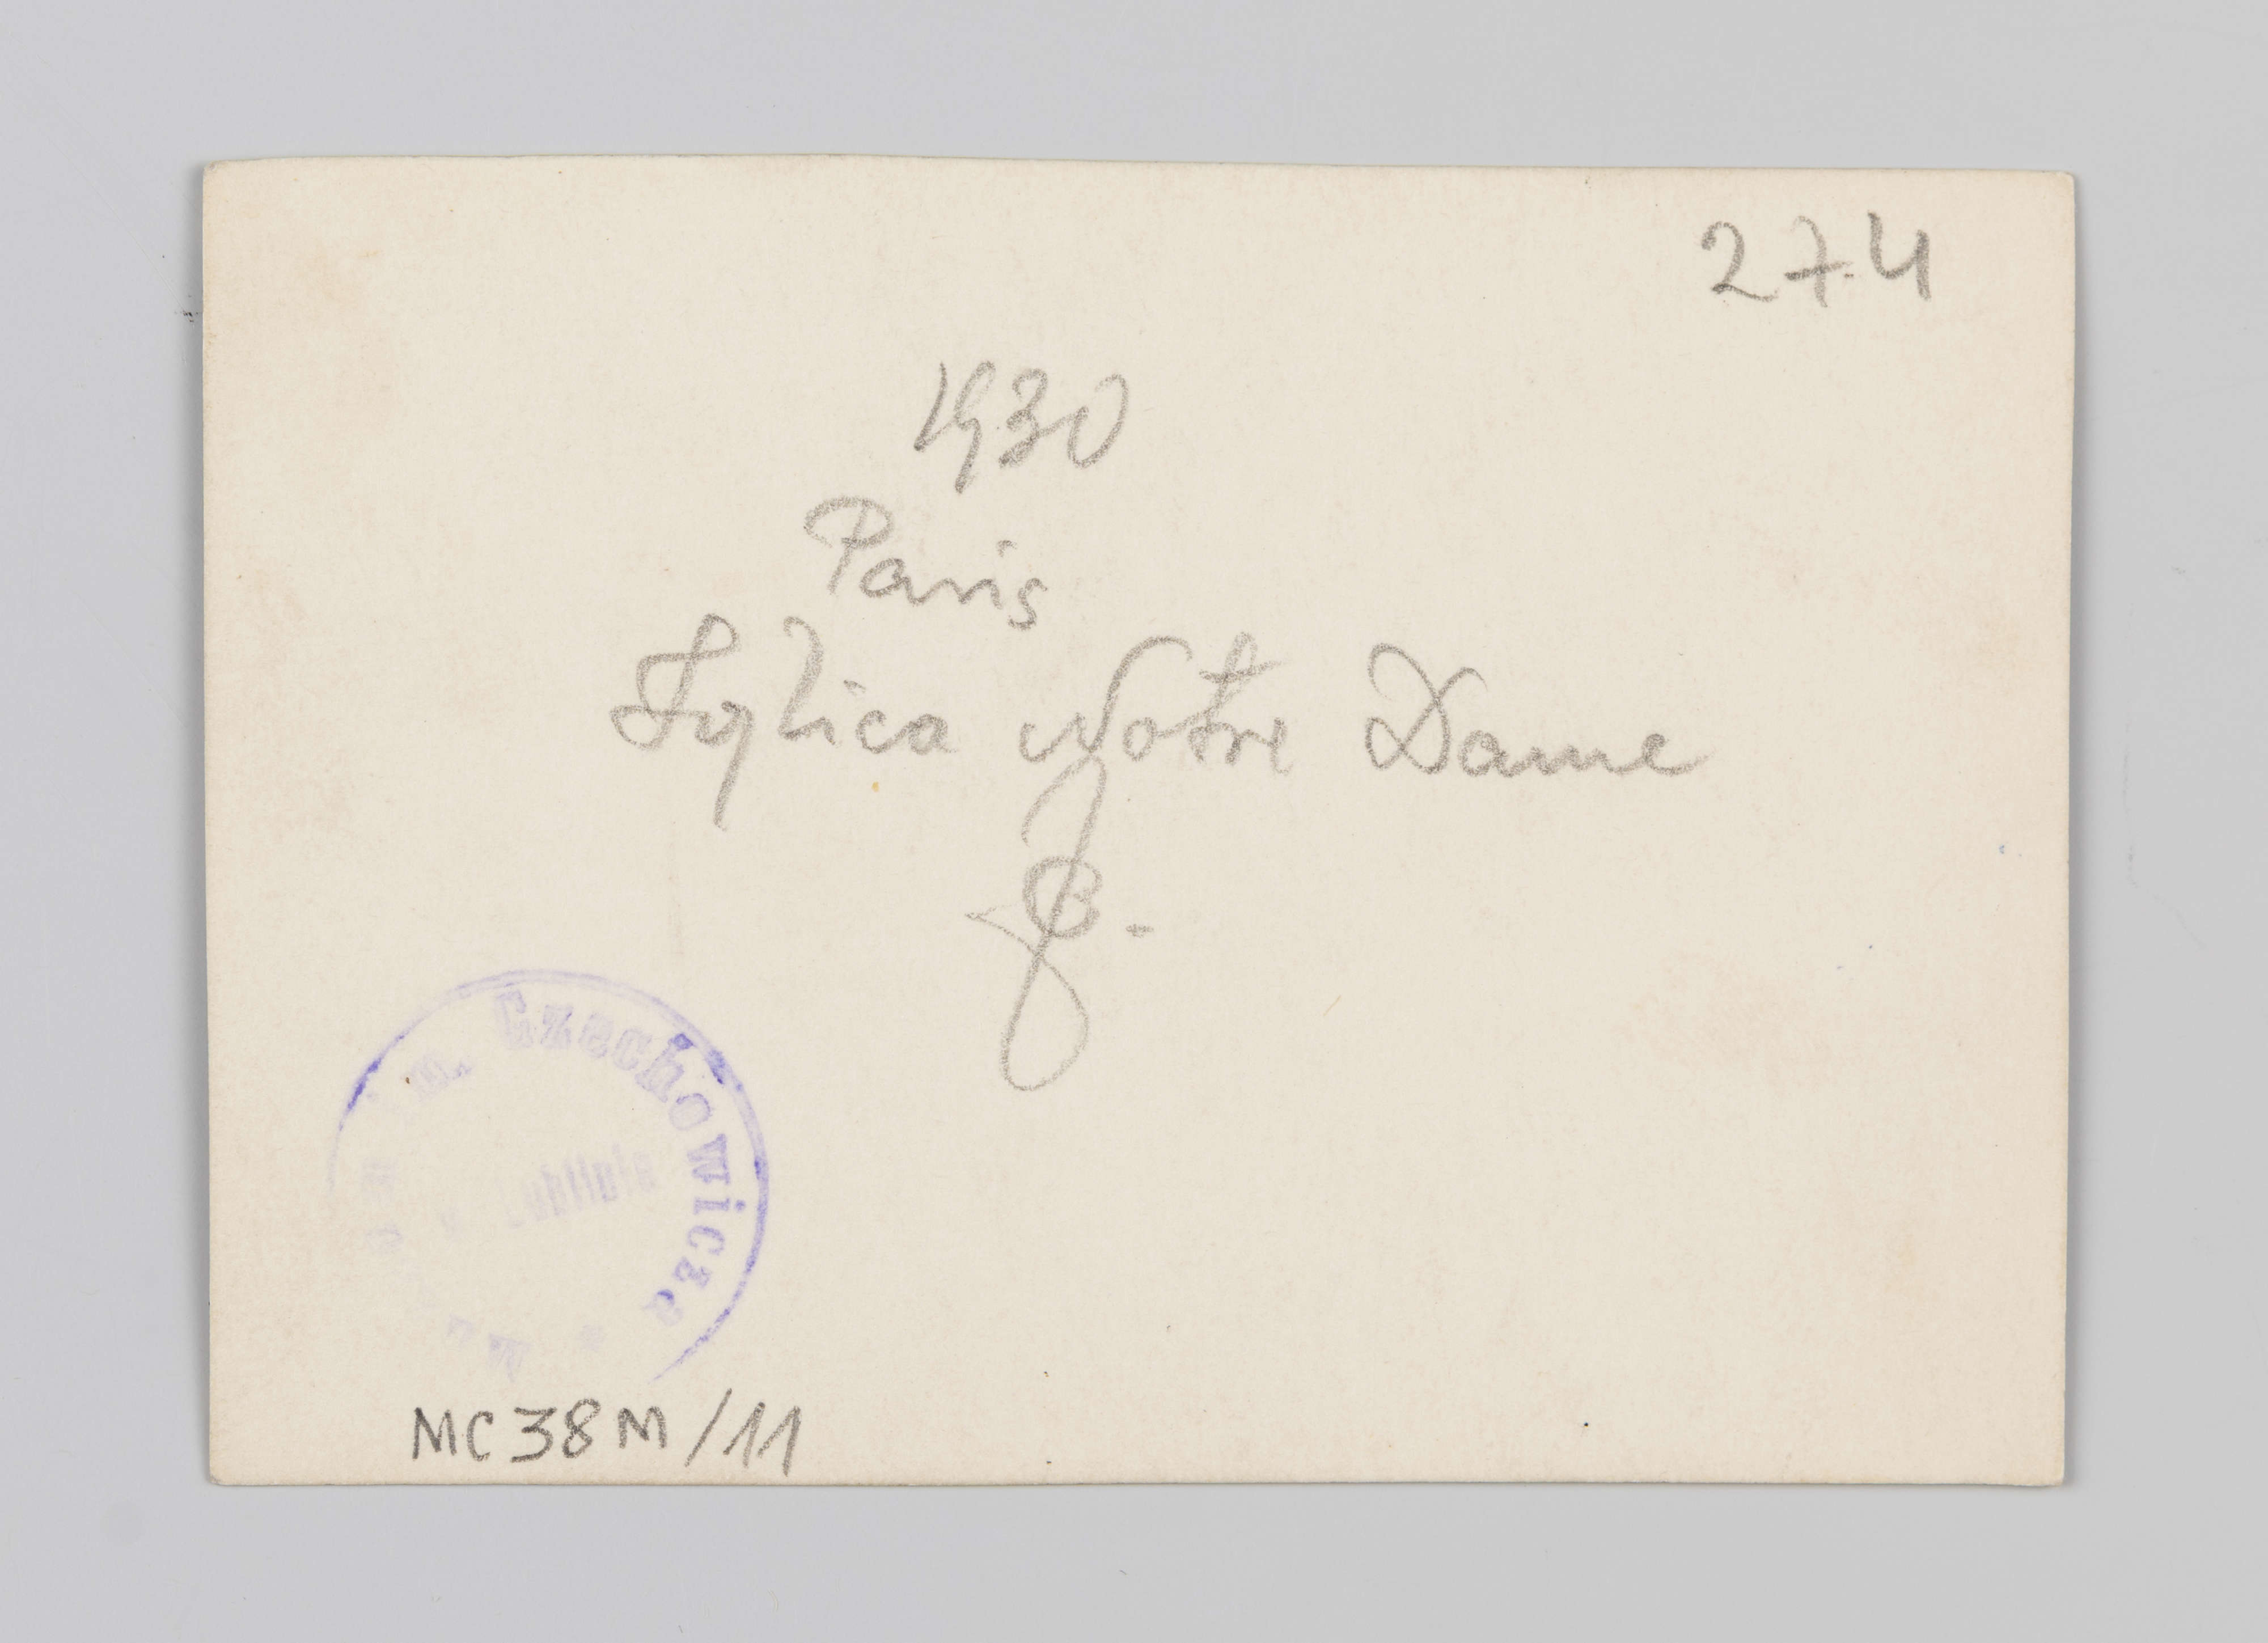 274
1930
Paris
Iglica Notre Dame
im. Czechowicza
w Lublinie
MC 38 M/11